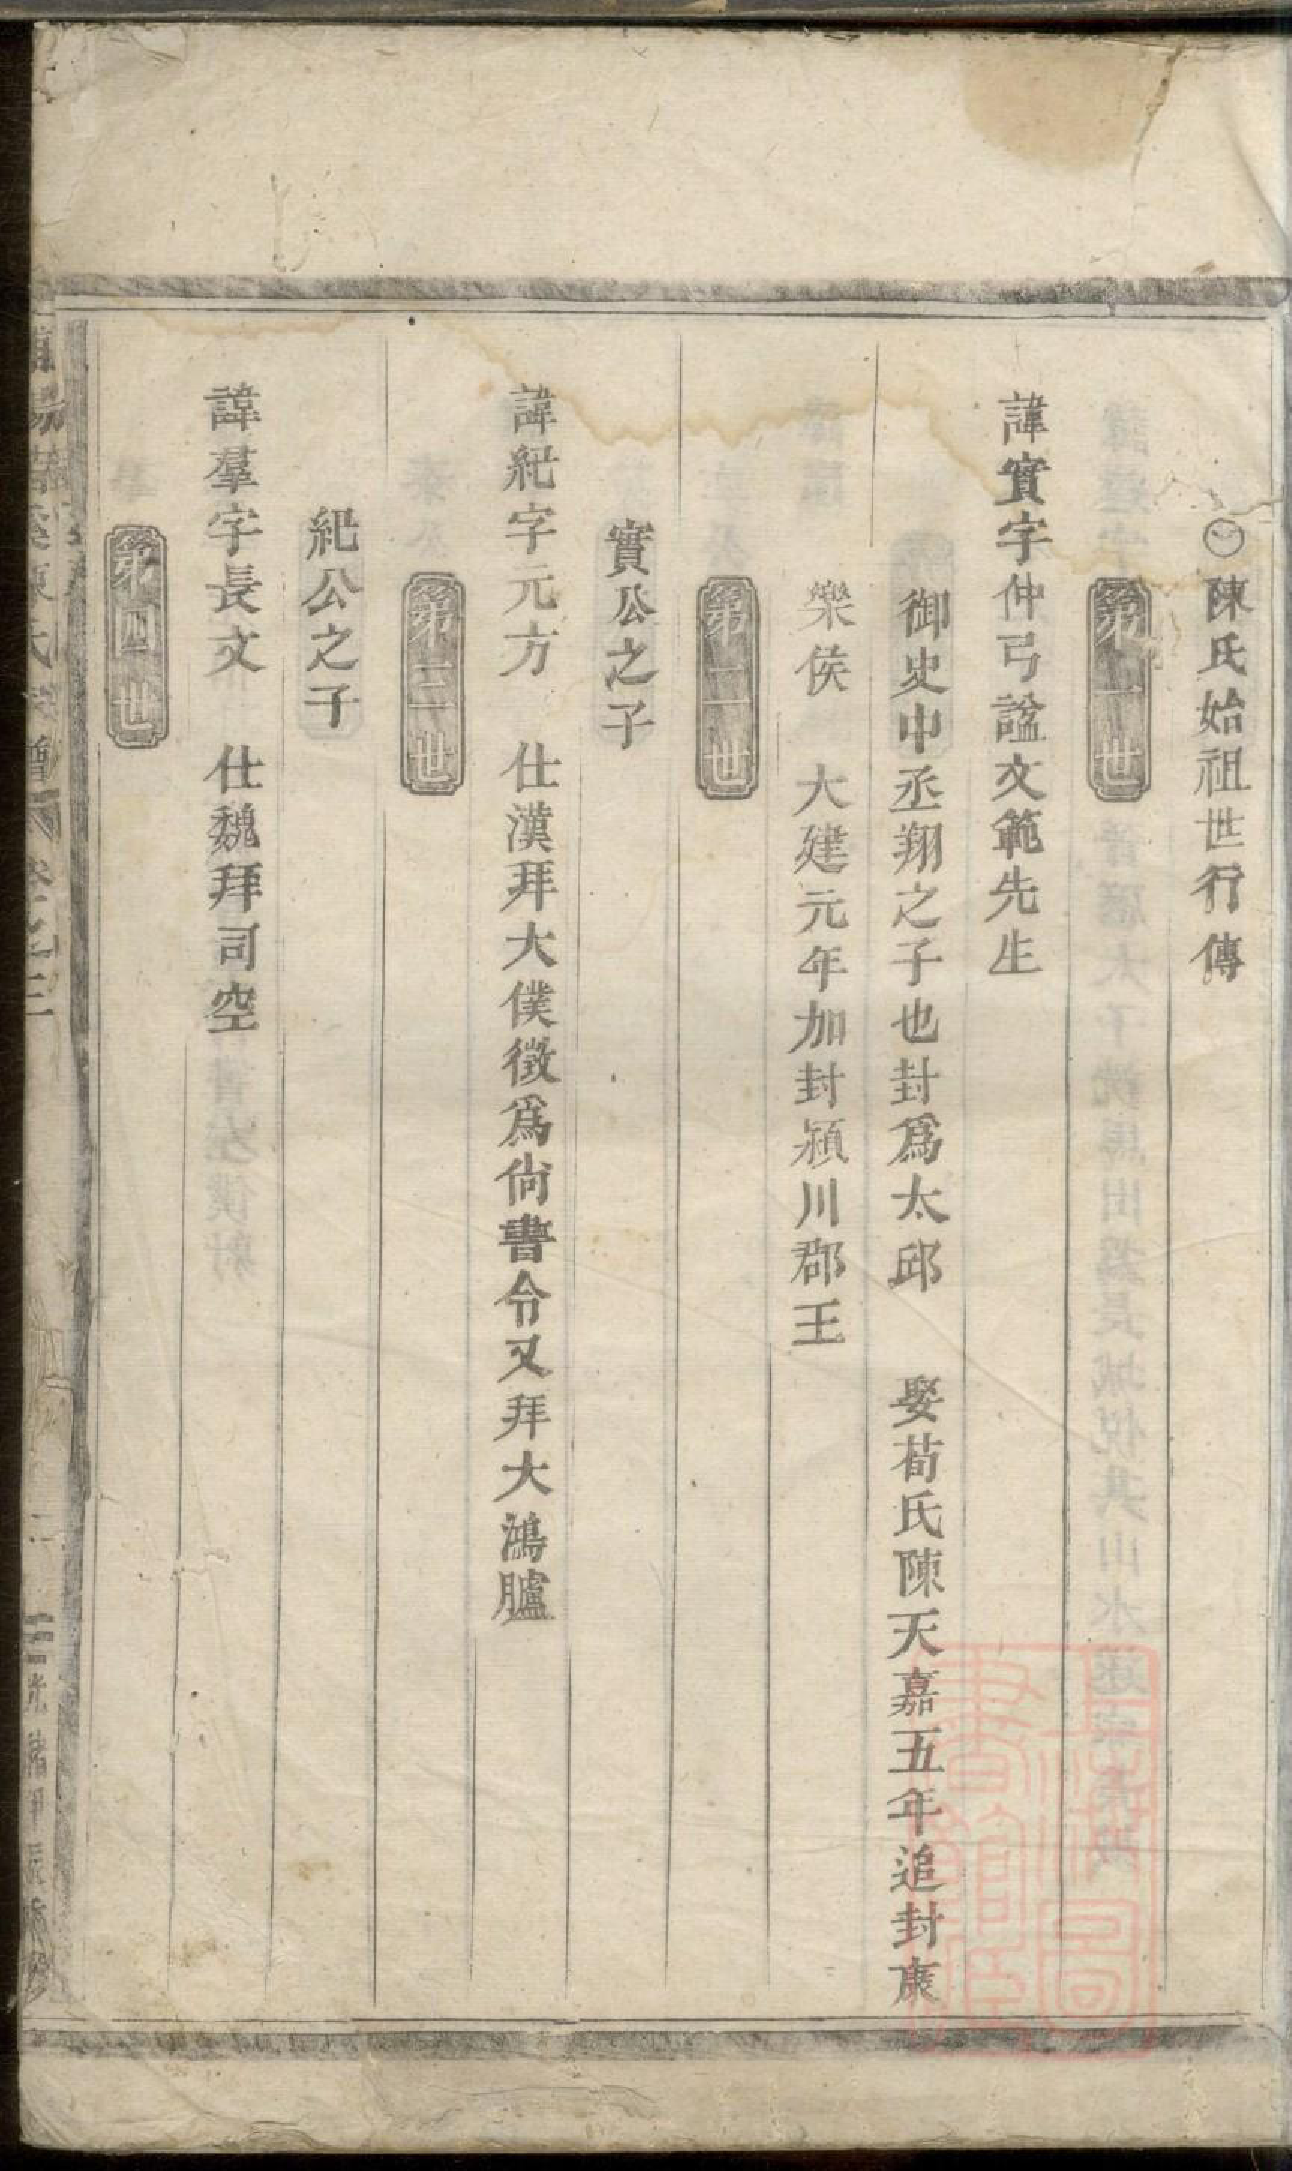 ○陳氏始祖世行傳
第一世
諱實字仲弓諡文範先生
御史中丞翔之子也封爲太邱　娶荀氏陳天嘉五年追封康
樂侯　大建元年加封潁川郡王
第二世
實公之子
諱紀字元方　仕漢拜大僕徵爲尙書令又拜大鴻臚
第三世
紀公之子
諱羣字長文　仕魏拜司空
第四世
陳氏